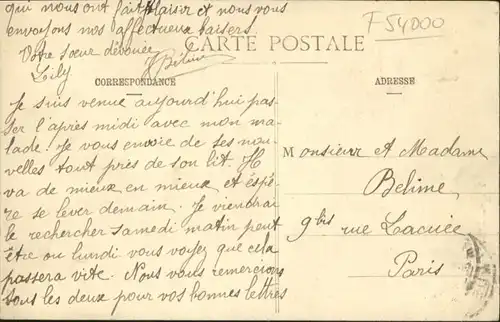 qui nous ont fait plaisir et nous vous
envoyons nos affectueux baisers.
Votre sœur dévouée
Lily
J Belime
F 54000
CARTE POSTALE
CORRESPONDANCE
Je suis venue aujourd'hui pas-
ser l'après midi avec mon ma-
lade. Je vous envoie de ses nou-
velles tout près de son lit. Il
va de mieux en mieux et espè-
re se lever demain. Je viendrai
le rechercher samedi matin peut
être ou lundi vous voyez que cela
passera vite. Nous vous remercions
tous les deux pour vos bonnes lettres
ADRESSE
Monsieur et Madame
Belime
9 bis rue Lacuée
Paris